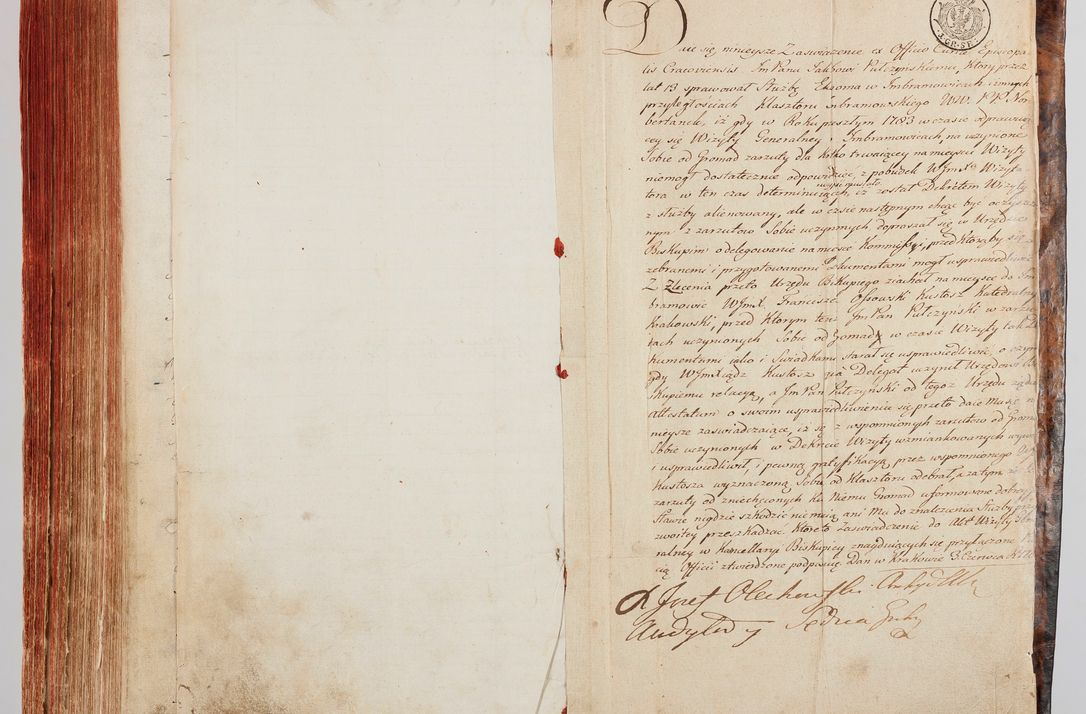 Daie się ninieysze Zaswiadczenie ex Officio Curiæ Episcopa
lis Cracoviensis ImPanu Jakbowi Pulczynskiemu, ktory przez
lat 13 sprawował Służbę Ekonoma w Imbramowicach i innych
przyległosciach Klasztoru Inbramowskiego WW. PP. Nor
bertanek, iż gdy w Roku przeszłym 1783 w czasie odprawuią
cey się Wizyty Generalney w Imbramowicach, na uczynione
Sobie od Gromad zarzuty dla krotko trwaiącey na mieyscu Wizyty
niemogł dostatecznie odpowiedziec, z pobudek WJmX Wizyta
tora w ten czas determinuiących, iz został Dekretem Wizyty
z służby alienowany, ale w czasie następnym chcąc byc oczyszczo
nym z zarzutow Sobie uczynionych dopraszał się w Urzędzie
Biskupim o delegowanie na mieysce Kommissyi, przed ktorąby się
zebranemi i przygotowanemi Dokumentami mogł usprawiedliwic
Z Zlecenia przeto Urzędu Biskupiego ziachał na mieysce do Im
bramowic WJmX. Franciszek Ossowski Kustosz Katedralny
Krakowski, przed ktorym tenze JmPan Pulczynski w zarzu
tach uczynionych Sobie od Gromady w czasie Wizyty tak Do
kumentami iako i Swiadkami starał się usprawiedliwic, o czym
gdy WJmXiądz Kustosz qua Delegat uczynił Urzędowi Bi
skupiemu relacyą, a JmPan Pulczyński od tegoz Urzędu żąda
Attestatum o swoim usprawiedliwieniu się przeto daie Mu się ni
nieysze zaswiadczaiące, iż się z wspomnionych zarzutow od Grom
Sobie uczynionych w Dekrecie Wizyty wzmiankowanych wywiodł
i usprawiedliwił, i pewną gratyfikacyą przez wspomnionego
Kustosza wyznaczoną Sobie od Klasztoru odebrał, a zatym ze te
zarzuty od zniechęconych ku Niemu Gromad uformowane dobrey
sławie nigdzie szkodzic niemaią ani Mu do znalezienia Służby przy
zwoitey przeszkadzac. Ktore to Zaswiadczenie do Akt Wizyty Ge
ralney w Kancellaryi Biskupiey znayduiących się przyłączone Pie
cią Officii ztwierdzone podpisuię. Dan w Krakowie 3. Czerwca
X Jozef Olechowski
Audytor Sędzia